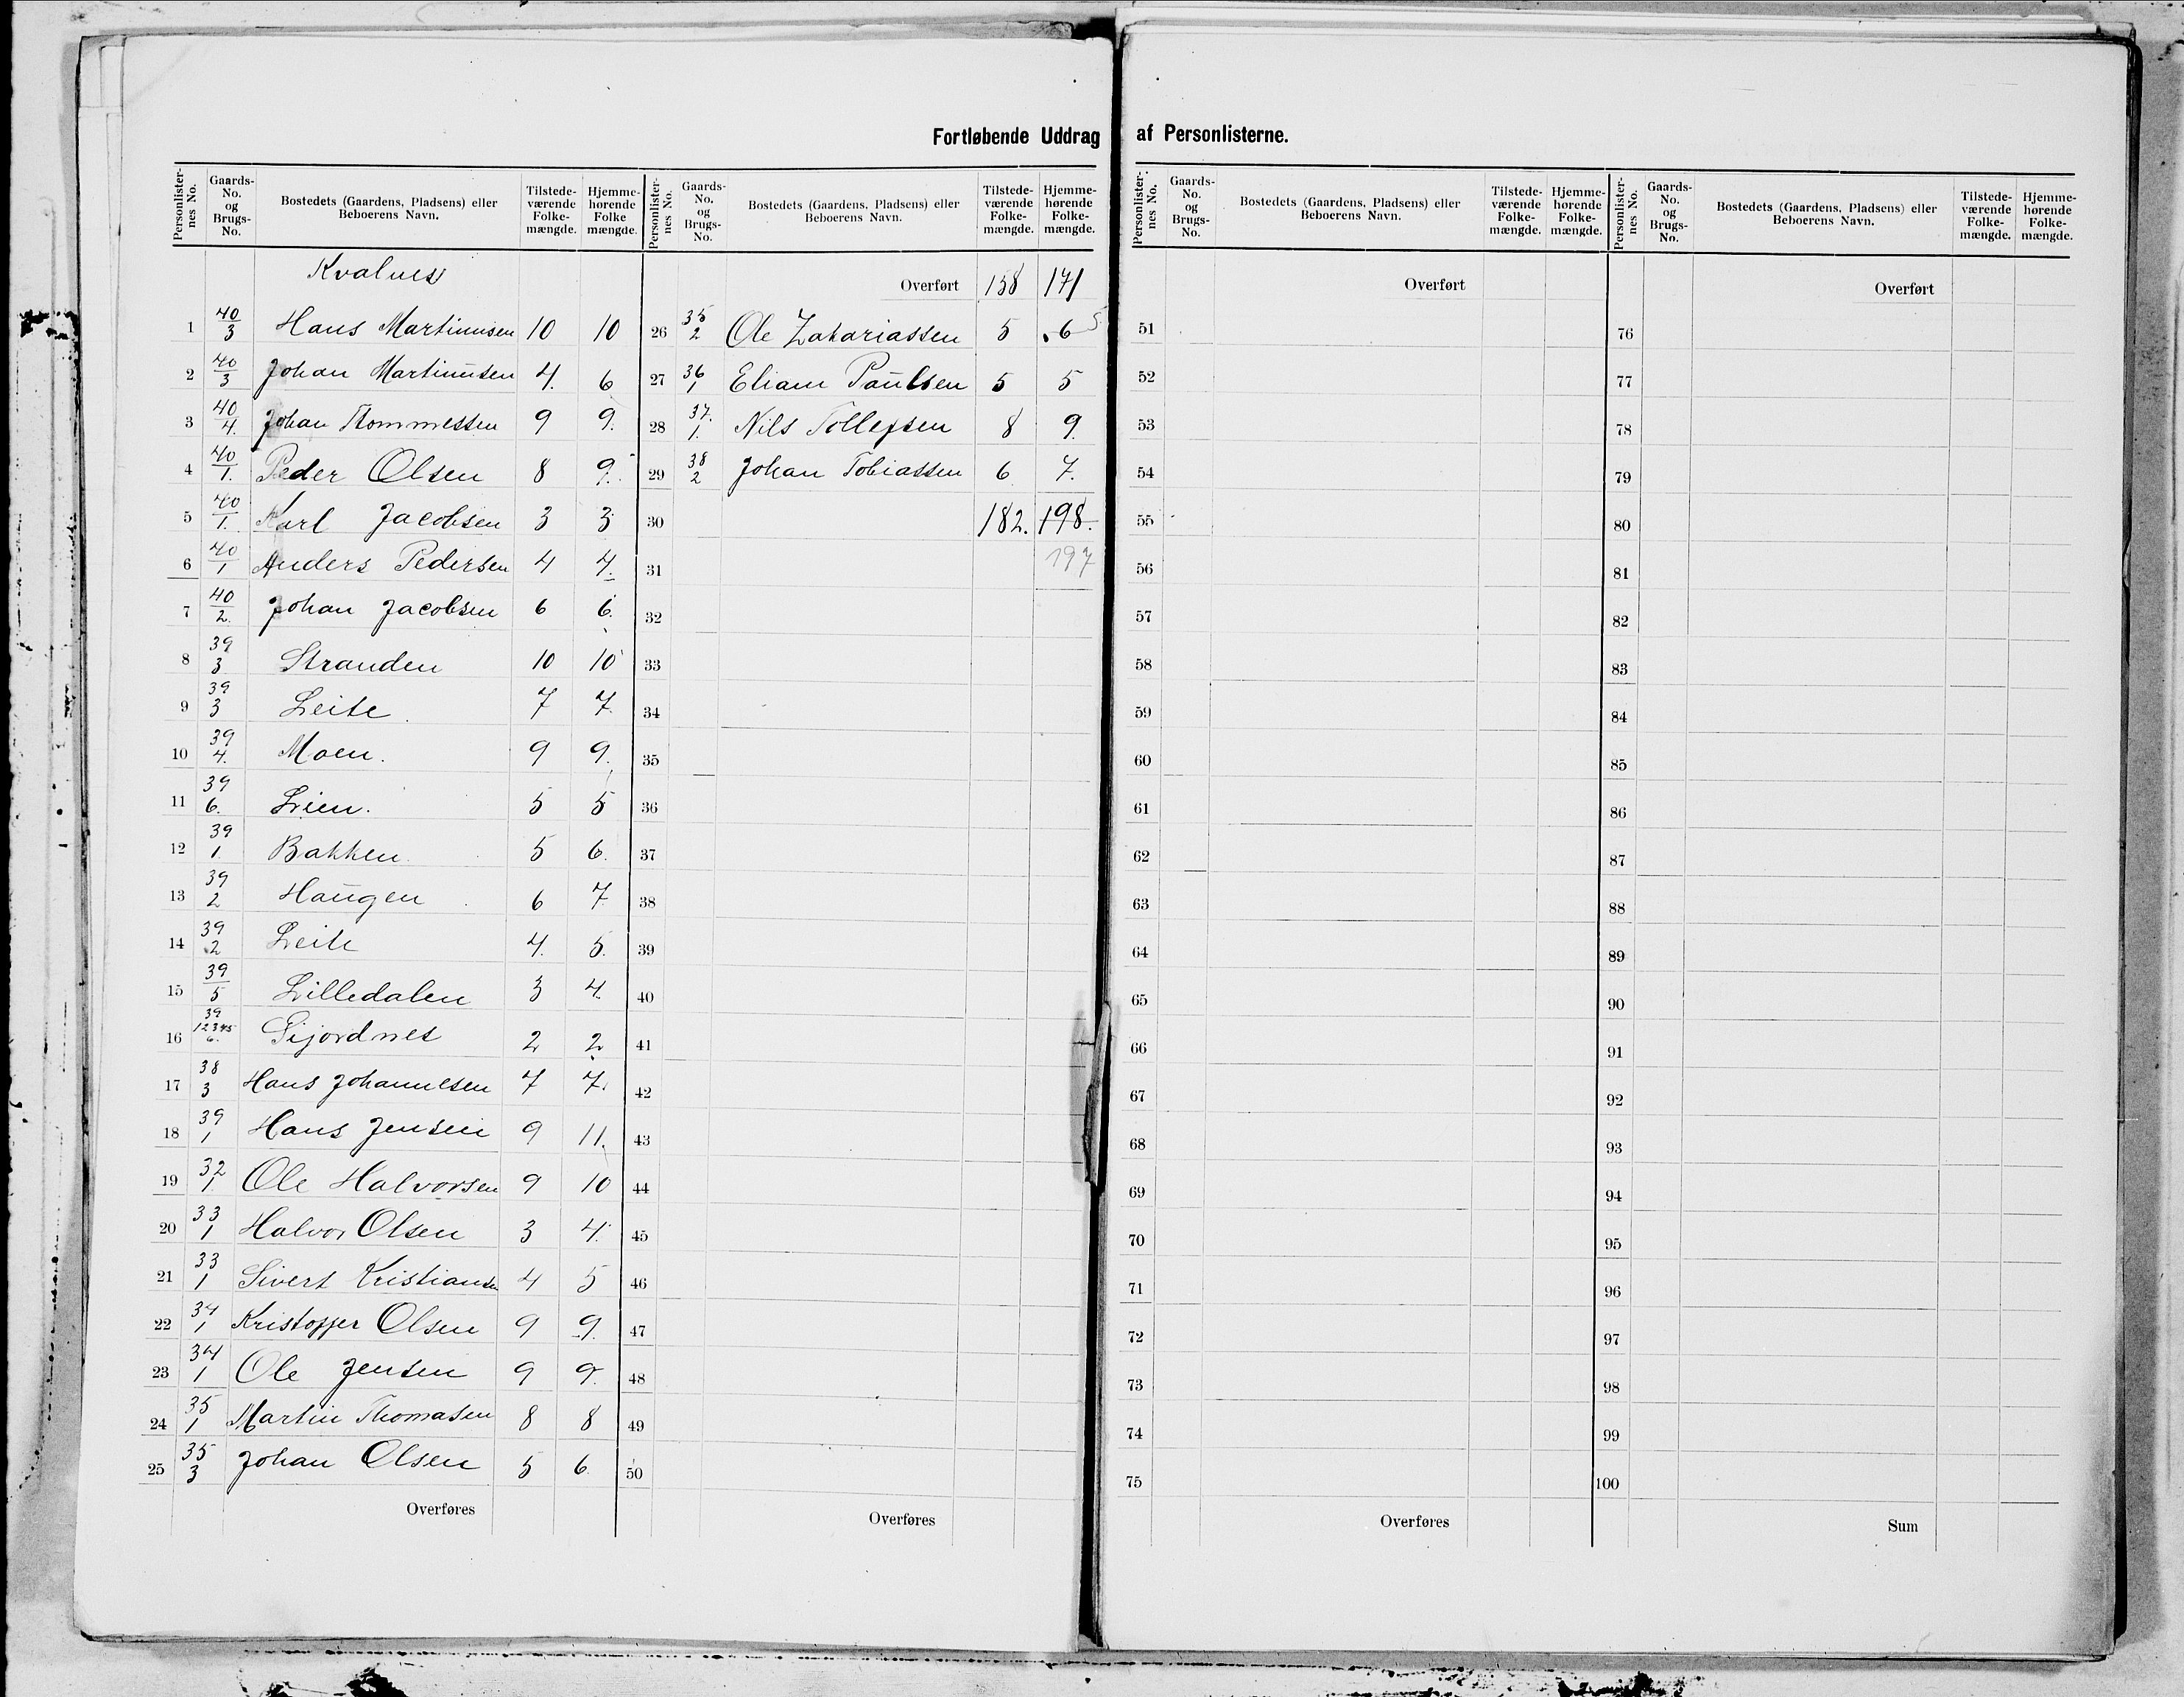 Fortløbende Uddrag af Personlisterne.
Personlister-nes No. Gaards-No. og Brugs-No. Bostedets (Gaardens, Pladsens) eller Beboerens Navn. Tilstede-værende Folke-mængde. Hjemme-hørende Folke mængde.
Kvalnes
1 40/3 Hans Martinusen 10 10
2 40/3 Johan Martinusen 4. 6
3 40/4. Johan Thommessen 9 9.
4 40/1. Peder Olsen 8 9.
5 40/1. Karl Jacobsen 3 3
6 40/1 Anders Pedersen 4 4.
7 40/2. Johan Jacobsen 6 6.
8 39/3 Stranden 10 10
9 39/3 Leite. 7 7.
10 39/4. Moen. 9 9.
11 39/6. Lien. 5 5
12 39/1 Bakken. 5 6.
13 39/2 Haugen 6 7
14 39/2 Leite 4. 5.
15 39/5 Lilledalen 3 4.
16 39/12345 6. Sijordnes 2 2
17 38/3 Hans Johannesen 7 7.
18 39/1 Hans Jensen 9 11.
19 32/1. Ole Halvorsen 9 10
20 33/1 Halvor Olsen 3 4.
21 33/1 Sivert Kristiansen 4 5
22 34/1 Kristoffer Olsen 9 9.
23 34/1 Ole Jensen 9 9.
24 35/1 Martin Thomasen 8 8
25 35/3 Johan Olsen 5 6
Overføres
Personlister-nes No. Gaards-No. og Brugs-No. Bostedets (Gaardens, Pladsens) eller Beboerens Navn. Tilstede-værende Folke-mængde. Hjemme-hørende Folke-mængde.
Overført 158 171
26 35/2 Ole Zakariassen 5 6 5
27 36/1 Eliam Paulsen 5 5
28 37./1. Nils Tollefsen 8 9.
29 38/2 Johan Tobiassen 6 7.
30 182. 198.
31 197
32
33
34
35
36
37
38
39
40
41
42
43
44
45
46
47
48
49
50
Overføres
Personlister-nes No. Gaards-No. og Brugs-No. Bostedets (Gaardens, Pladsens) eller Beboerens Navn. Tilstede-værende Folke-mængde. Hjemme-hørende Folke-mængde.
Overført
51
52
53
54
55
56
57
58
59
60
61
62
63
64
65
66
67
68
69
70
71
72
73
74
75
Overføres
Personlister-nes No. Gaards-No. og Brugs-No. Bostedets (Gaardens, Pladsens) eller Beboerens Navn. Tilstede-værende Folke-mængde. Hjemme-hørende Folke-mængde.
Overført
76
77
78
79
80
81
82
83
84
85
86
87
88
89
90
91
92
93
94
95
96
97
98
99
100
Sum